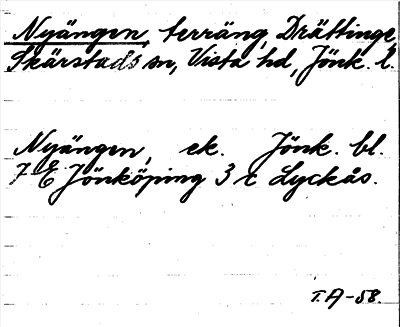 Nyängen, terräng, Drättinge,
Skärstads sn, Vista hd, Jönk. l.
Nyängen, ek. Jönk. bl.
7 E Jönköping 3 c Lyckås.
T.A-58.